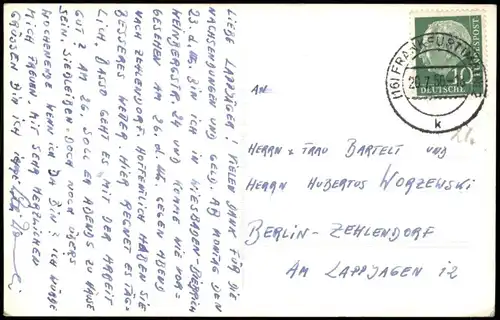 LIEBE LAPPJÄGER! VIELEN DANK FÜR DIE
NACHSENDUNGEN UND GELD. AB MONTAG DEN
23. d. M. BIN ICH IN WIESBADEN-BIEBRICH
WEINBERGSTR. 24 UND KOMME WIE VOR=
GESEHEN AM 26. d. M. GEGEN ABEND
NACH ZEHLENDORF. HOFFENTLICH HABEN SIE
BESSERES WEDER. HIER REGNET ES TÄG=
LICH. BASSE GEHT ES MIT DER ARBEIT
GUT? AM 26. SOLL ER ABENDS ZU HAUSE
SEIN. SIE BLEIBEN DOCH NOCH ÜBERS
WOCHENENDE WENN ICH DA BIN? ICH WÜRDE
MICH FREUEN. MIT SEHR HERZLICHEN
GRÜSSEN BIN ICH IHRE
AN
HERRN u. FRAU BARTELT UND
HERRN HUBERTUS WORZEWSKI
BERLIN-ZEHLENDORF
AM LAPPJAGEN 12
(16) FRANKFURT
20.7.56
k
DEUTSCHE BUNDESPOST
10